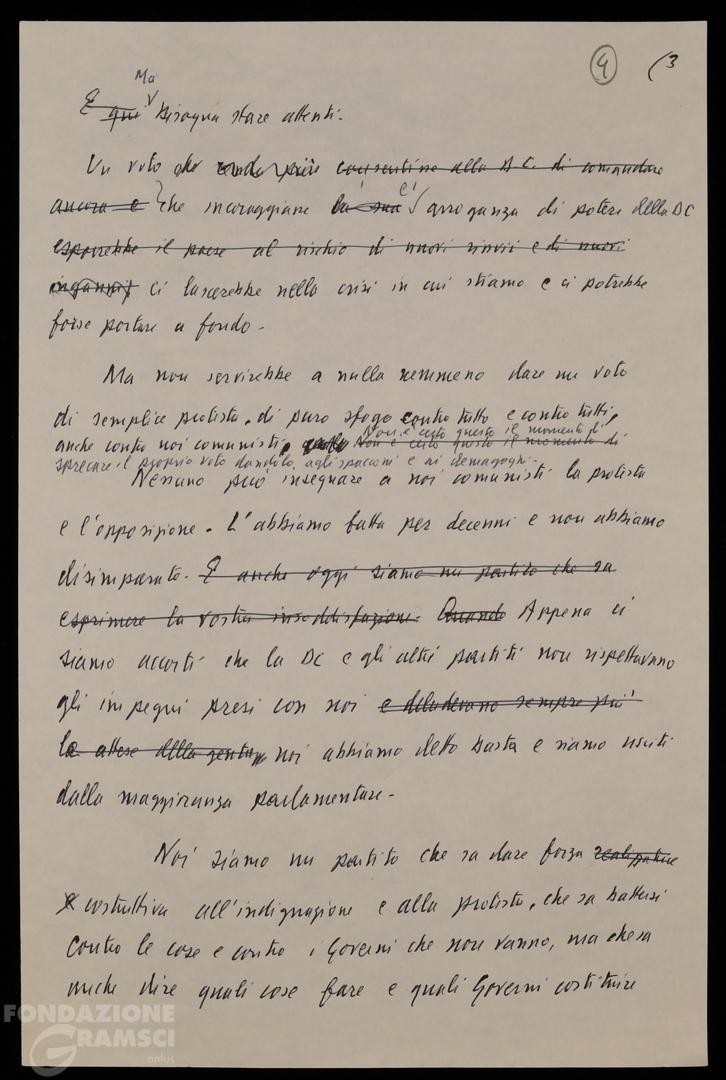 4 (3
Ma
E qui bisogna stare attenti.
Un voto che consentisse alla DC di comandare
ancora e che incoraggiare la sua l' arroganza di potere della DC
esporrebbe il paese al rischio di nuovi rinvii e di nuovi
inganni, ci lascerebbe nella crisi in cui stiamo e ci potrebbe
forse portare a fondo.
Ma non servirebbe a nulla nemmeno dare un voto
di semplice protesta, di puro sfogo contro tutto e contro tutti,
Non è certo questo il momento di
anche contro noi comunisti. Non è certo questo il momento di
sprecare il proprio voto dandolo agli spacconi e ai demagoghi.
Nessuno può insegnare a noi comunisti la protesta
e l'opposizione. L'abbiamo fatta per decenni e non abbiamo
disimparato. E anche oggi siamo un partito che sa
esprimere la vostra insoddisfazione. Quando Appena ci
siamo accorti che la DC e gli altri partiti non rispettavano
gli impegni presi con noi e deludevano sempre più
le attese della gente, noi abbiamo detto basta e siamo usciti
dalla maggioranza parlamentare.
Noi siamo un partito che sa dare forza realizzatrice
e costruttiva all'indignazione e alla protesta, che sa battersi
contro le cose e contro i Governi che non vanno, ma che sa
anche dire quali cose fare e quali Governi costituire
FONDAZIONE
GRAMSCI
onlus